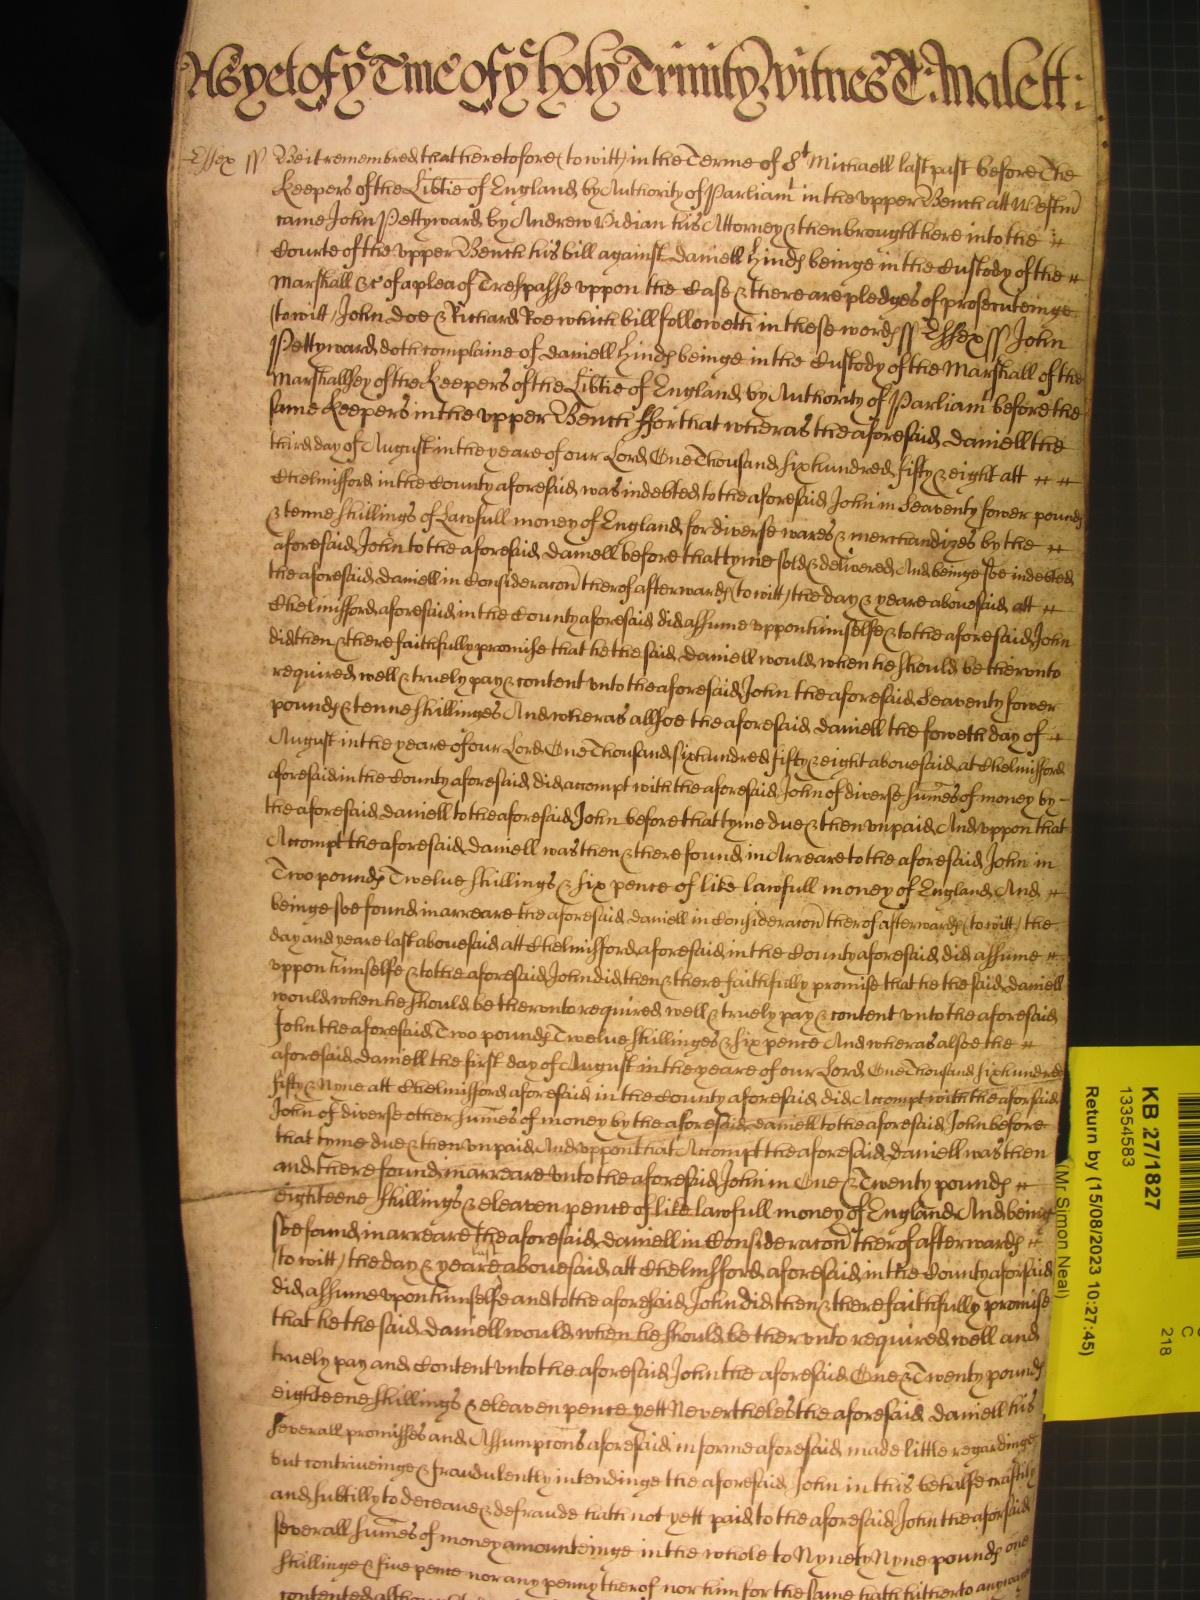 As yet of ye Tme of ye holy Trinity witnes T: Malett:
Essex ss Be it remembred that heretofore (to witt) in the Terme of St Michaell last past before The
Keepers of the Libtie of England by Authority of Parliamt in the vpper Bench att Westm
came John Pettyward by Andrew Vidian his Attorney & then brought here into the
Courte of the vpper Bench his bill against Daniell Hinds beinge in the Custody of the
Marshall &c of a plea of Trespasse vppon the Case & there are pledges of prosecuteinge
(to witt) John Doe & Richard Roe which bill followeth in these words ss Essex ss John
Pettyward doth complaine of Daniell Hinds beinge in the Custody of the Marshall of the
Marshallsey of the Keepers of the Libtie of England by Authority of Parliamt before the
same Keepers in the vpper Bench ffor that wheras the aforesaid Daniell the
third day of August in the yeare of our Lord One Thousand six hundred fifty & eight att
Chelmisford in the County aforesaid was indebted to the aforesaid John in Seaventy fower pounds
& tenne shillings of Lawfull money of England for diverse wares & merchandizes by the
aforesaid John to the aforesaid Daniell before that tyme sold & delivered And beinge soe indebted
the aforesaid Daniell in Consideracon therof afterwards (to witt) the day & yeare abouesaid att
Chelmisford aforesaid in the County aforesaid did assume vppon himselfe & to the aforesaid John
did then & there faithfully promise that he the said Daniell would when he should be thervnto
required well & truely pay & content vnto the aforesaid John the aforesaid Seaventy fower
pounds & tenne shillinges And wheras allsoe the aforesaid Daniell the foweth day of
August in the yeare of our Lord One Thousand six hundred fifty & eight abouesaid at Chelmisford
aforesaid in the County aforesaid did accompt with the aforesaid John of diverse sumes of money by
the aforesaid Daniell to the aforesaid John before that tyme due & then vnpaid And vppon that
Accompt the aforesaid Daniell was then & there found in Arreare to the aforesaid John in
Two pounds Twelue shillings & six pence of like lawfull money of England And
beinge soe found in arreare the aforesaid Daniell in Consideracon therof afterwards (to witt) the
day and yeare last abouesaid att Chelmisford aforesaid in the County aforesaid did assume
vppon himselfe & to the aforesaid John did then & there faithfully promise that he the said Daniell
would when he should be thervnto required well & truely pay & content vnto the aforesaid
John the aforesaid Two pounds Twelue shillinges & six pence And wheras alsoe the
aforesaid Daniell the first day of August in the yeare of our Lord One Thousand six hundred
fifty & Nyne att Chelmisford aforesaid in the County aforesaid did Accompt with the aforsaid
John of diverse other sumes of money by the aforesaid Daniell to the aforesaid John before
that tyme due & then vnpaid And vppon that Accompt the aforesaid Daniell was then
and there found in arreare vnto the aforesaid John in One & Twenty pounds
eighteene shillings & eleaven pence of like lawfull money of England And being
soe found in arreare the aforesaid Daniell in Consideracon therof afterwards
(to witt) the day & yeare last abouesaid att Chelmsford aforesaid in the County aforsaid
did assume vpon himselfe and to the aforesaid John did then & there faithfully promise
that he the said Daniell would when he should be thervnto required well and
truely pay and Content vnto the aforesaid John the aforesaid One & Twenty pounds
eighteene shillings & eleaven pence yett Neverthelesthe aforesaid Daniell his
severall promisses and Assumpcons aforesaid in forme aforesaid made little regardinge
but contriveinge & fraudulently intendinge the aforesaid John in this behalfe craftily
and subtilly to deceaue & defraude hath not yett paid to the aforesaid John the aforsaid
severall sumes of money amounteinge in the whole to Nynety Nyne pounds one
shillinge & five pence nor any penny therof nor him for the same hath hitherto anyway
contented
KB 27/1827
13354583
Return by (15/08/2023 10:27:45)
(Mr Simon Neal)
C
218